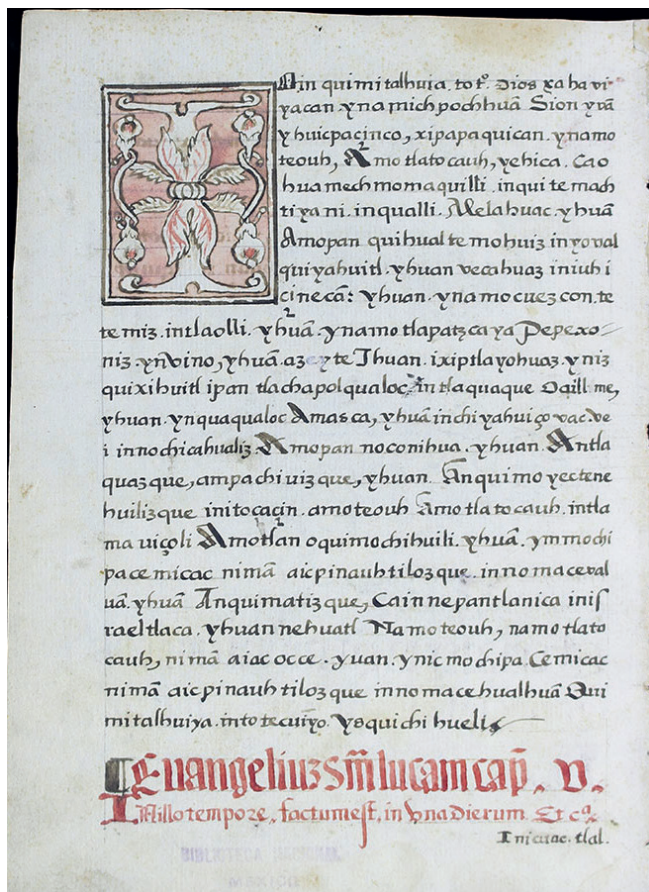 In quimitalhuia. toto. Dios xa ha vi
yacan. yna michpochhuā Sion yvā
yhuicpacinco, xipapaquican. ynamo
teouh, Amotlatocauh, yehica. Cao
huamechmomaquilli. inquitemach
tiyani. inqualli. Melahuac. yhuā
Amopan quihualtemohuiz inyoval
quiyahuitl. yhuan vecahuaz iniuh i
cinecā: yhuan. ynamocuezcon. te
temiz. intlaolli. yhuā. ynamotlapatzcaya Pepexo-
niz. ynvino, yhuā. azeyte Ihuan. ixiptlayohuaz. yniz
quixihuitl ipan tlachapolqualoc, intlaquaque
yhuan. ynquaqualoc Amasca, yhuā inchiyahuiço vac. ve
i innochicahualiz. Amopan noconihua. yhuan. Antla
quazque, ampachivizque, yhuan. Anquimoyectene
huilizque initocaçin. amoteouh Amotlatocauh. intla
maviçoli Amotlan oquimochihuili. yhuā. ymmochi
pa cemicac nimā aic pinauhtilozque. innomaceval
uā. yhuā Anquimatizque, Ca in nepantlanica inis
raeltlaca. yhuan nehuatl Namoteouh, namotlato
cauh, nimā aiac occe. yuan. ynic mochipa Cemicac
nimā aicpinauhtilozque innomacehualhuā Qui
mitalhuiya. intotecuiyo. ysquichihueli
¶ Euangeliuz Sm̄ lucam cap̄. v.
In illo tempore, factum est, in vna dierum. Et ca.
Inicuac. tlal.
BIBLIOTECA NACIONAL
MEXICO